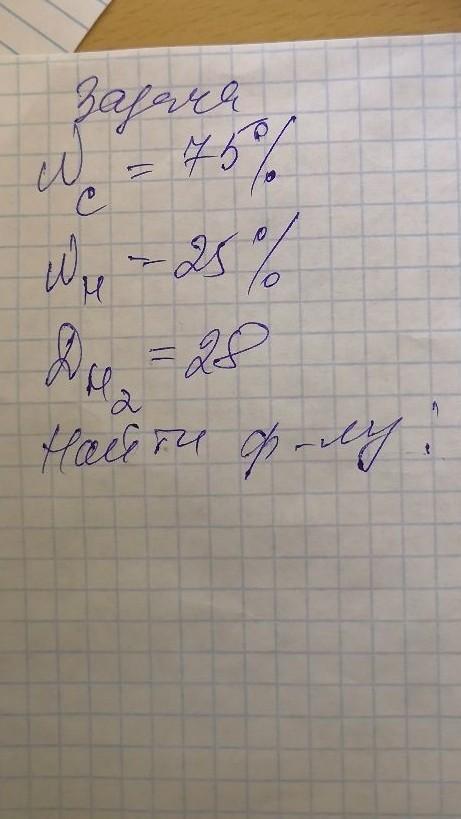 Задача
W_C = 75%
W_H = 25%
Д_H_2 = 28
Найти ф-лу!